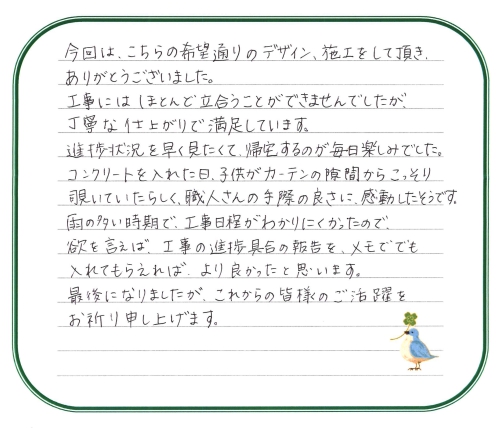 今回は、こちらの希望通りのデザイン、施工をして頂き、
ありがとうございました。
工事にはほとんど立会うことができませんでしたが、
丁寧な仕上がりで満足しています。
進捗状況を早く見たくて、帰宅するのが毎日楽しみでした。
コンクリートを入れた日、子供がカーテンの隙間からこっそり
覗いていたらしく、職人さんの手際の良さに、感動したそうです。
雨の多い時期で、工事日程がわかりにくかったので、
欲を言えば、工事の進捗具合の報告を、メモででも
入れてもらえれば、より良かったと思います。
最後になりましたが、これからの皆様のご活躍を
お祈り申し上げます。